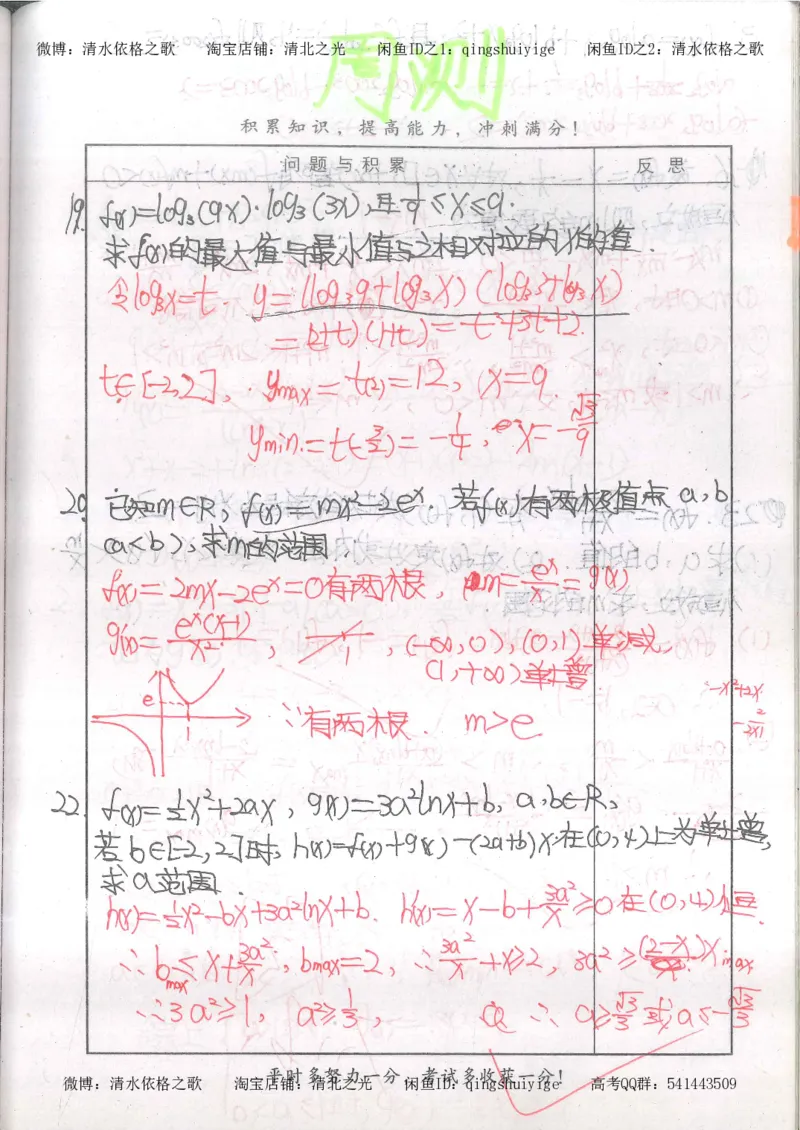 微博：清水依格之歌 淘宝店铺：清北之光 闲鱼ID之1：qingshuiyige 闲鱼ID之2：清水依格之歌
周测
积累知识，提高能力，冲刺满分！
问题与积累 反思
19. f(x)=log₃(9x)·log₃(3x),且1/9≤x≤9.
求f(x)的最大值与最小值与之相对应的x的值.
令log₃x=t. y=(log₃9+log₃x)(log₃3+log₃x)
=(2+t)(1+t)=t²+3t+2.
t∈[-2,2], y_max=t(2)=12, x=9.
y_min.=t(-3/2)=-1/4, x=√3/9
20. 已知m∈R, f(x)=mx²-2eˣ. 若f(x)有两极值点a,b
(a<b),求m的范围.
f(x)=2mx-2eˣ=0有两根, m=eˣ/x=g(x)
g'(x)=eˣ(x-1)/x², 1, (-∞,0),(0,1)单减,
(1,+∞)单增
e
1
∵有两根. m>e
-x²+2x.
22. f(x)=½x²+2ax, g(x)=3a²lnx+b, a,b∈R,
若b∈[-2,2]时, h(x)=f(x)+g(x)-(2a+b)x在(0,4)上为单增,
求a范围.
h(x)=½x²-bx+3a²lnx+b. h'(x)=x-b+3a²/x≥0在(0,4)恒.
∴b_max≤x+3a²/x, b_max=2, ∴3a²/x+x≥2, 3a²≥(2-x)x_max
∴3a²≥1, a²≥1/3, ∴a≥√3/3或a≤-√3/3
平时多努力一分，考试多收获一分！
微博：清水依格之歌 淘宝店铺：清北之光 闲鱼ID：qingshuiyige 高考QQ群：541443509